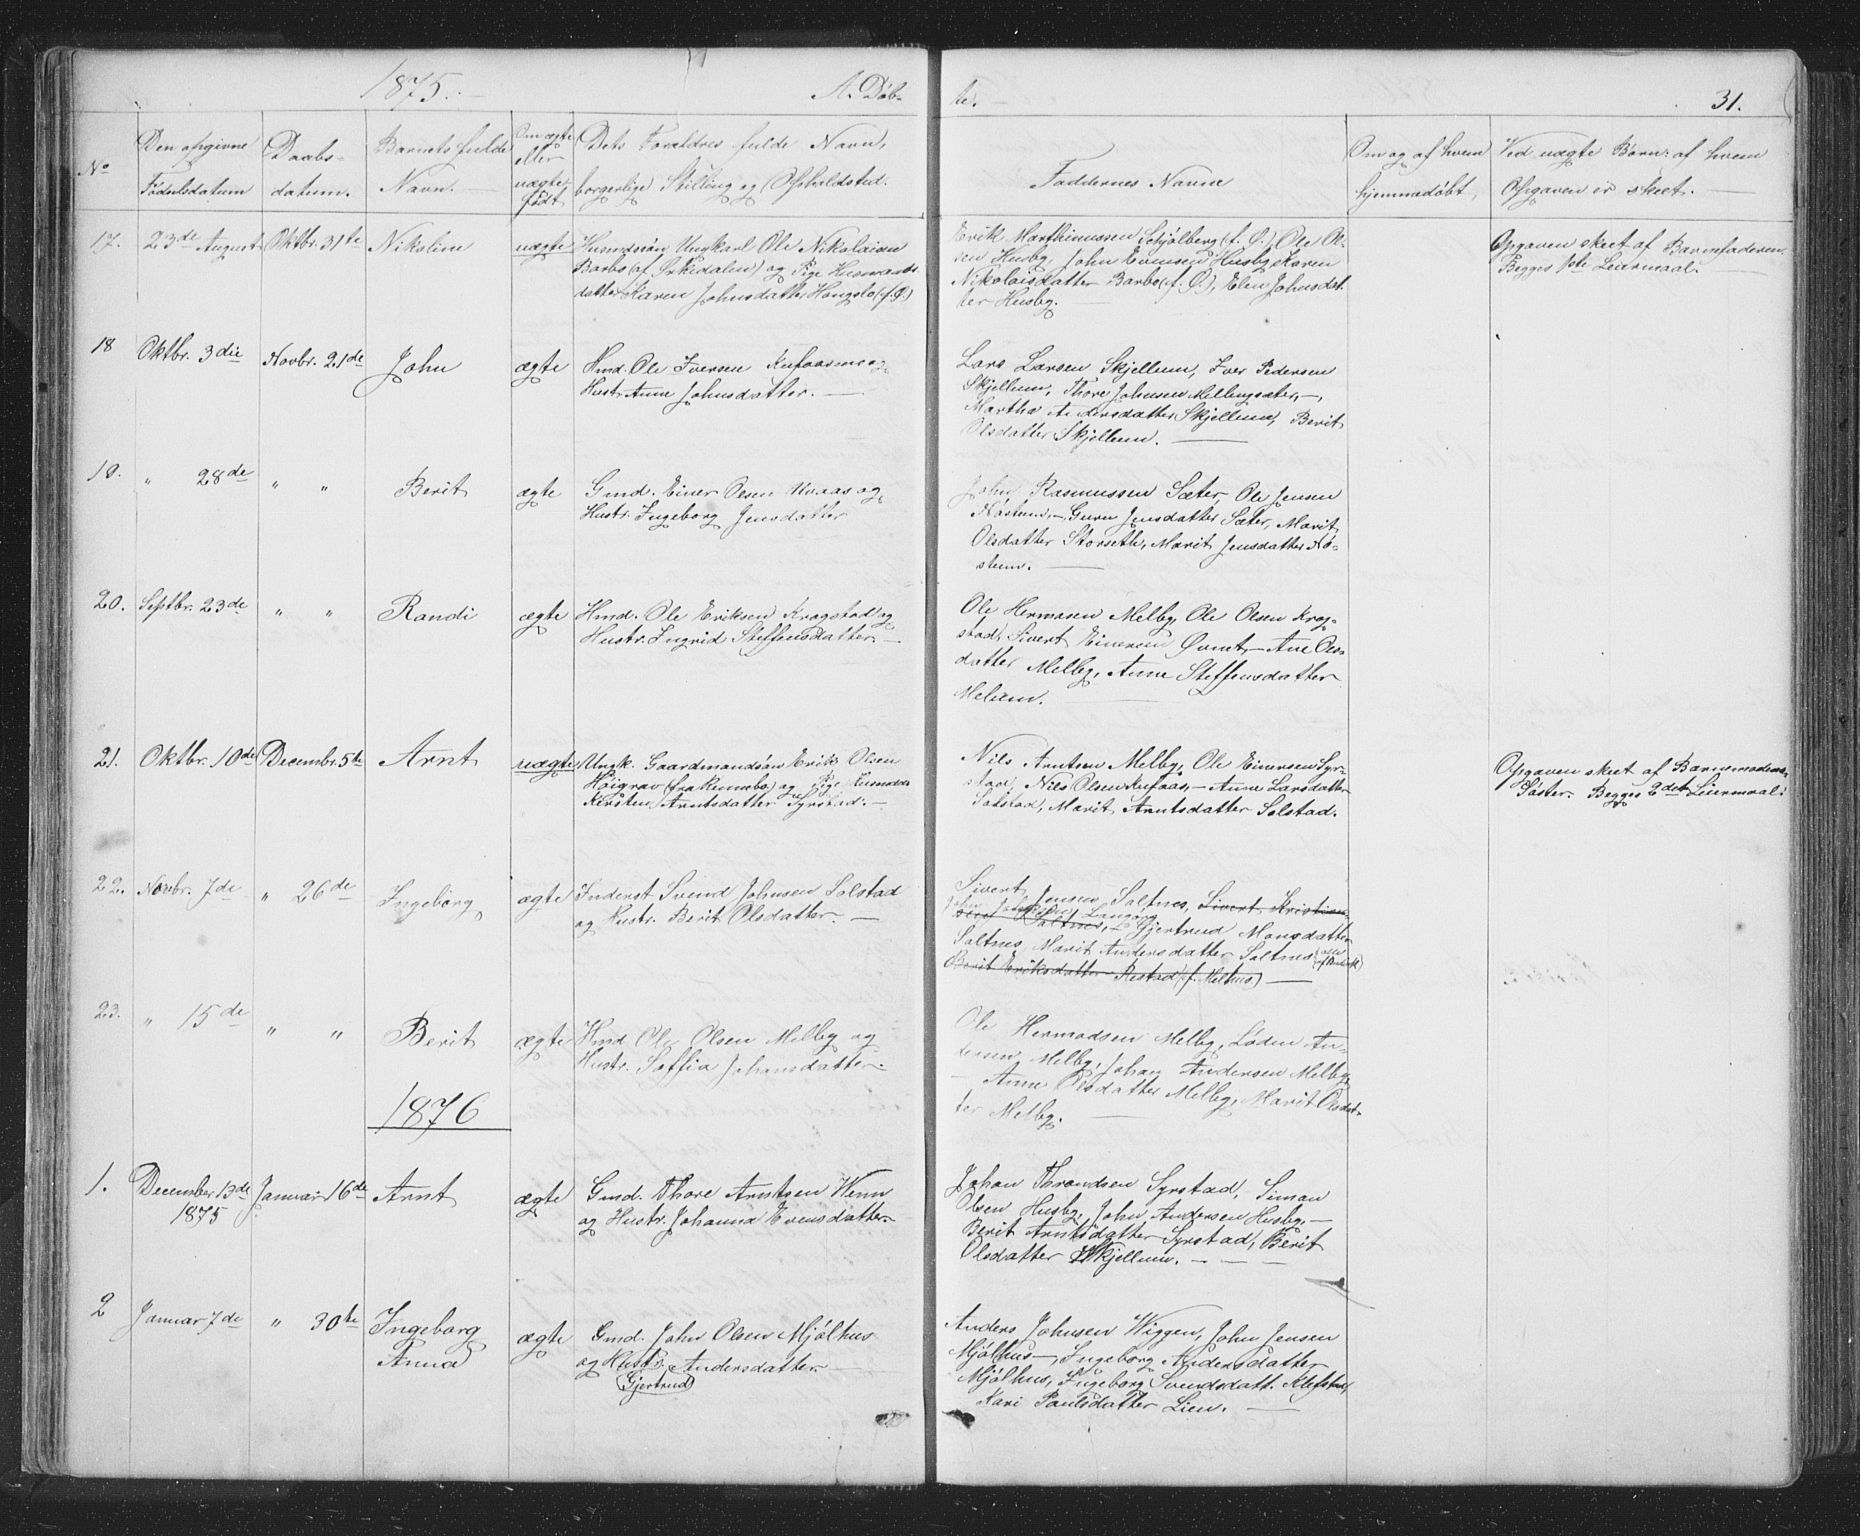 1875. A. Døb- te. 31.
No
Den opgivne Fødselsdatum
Daabs-datum.
Barnets fulde Navn.
Om ægte eller uægte født
Dets Forældres fulde Navn, borgerlige Stilling og Opholdsted.
Faddernes Navne
Om og af hvem hjemmedøbt,
Ved uægte Børn: af hvem Opgaven er skeet.
17. 23de August Oktbr. 31te Nikoline uægte
Husmdssøn Ungkarl Ole Nikolaisen
Barbo (af Orkedalen) og Pige Husmands
datter Karen Johnsdatter Hongslo (f. Ø.)
Erik Marthinussen Schjølberg (f. Ø.) Ole Ol-
sen Husby, John Evensen Husby, Karen
Nikolaisdatter Barbo (f. Ø.), Elen Johnsdat
ter Husby.
Opgaven skeet af Barnefaderen.
Begges 1ste Leiermaal.
18 Oktbr. 3die Novbr. 21de John ægte
Hmd. Ole Iversen Kufaasmo og
Hustr. Anne Johnsdatter.
Lars Larsen Skjellum, Iver Pedersen
Skjellum, Thore Johnsen Melbugsæter, -
Martha Andersdatter Skjellum, Berit
Olsdatter Skjellum.
19. " 28de " " Berit ægte
Gmd. Einer Olsen Uvaas og
Hustr. Ingeborg Jensdatter
John Rasmussen Sæter, Ole Jensen
Nøstum, - Guru Jensdatter Sæter, Marit
Olsdatter Storseth, Marit Jensdatter Nø-
stum.
20. Septbr. 23de " " Randi ægte
Hmd. Ole Eriksen Kragstad og
Hustr. Ingrid Steffensdatter.
Ole Hermosen Melby, Ole Olsen Krag-
stad, Sivert Einersen Øvnet, - Ane Ols-
datter Melby, Anne Steffensdatter
Melum.
21. Oktbr. 10de Decembr. 5te Arnt uægte
Ungk. Gaardmandsøn Erik Olsen
Høigrav (fra Rennebo) og Pige Husmdds
Kirsten Arntsdatter Syrstad. -
Nils Arntsen Melby, Ole Einersen Syr-
stad, Nils Olsen Kufaas, - Anne Larsdatter
Solstad, Marit Arntsdatter Solstad.
Opgaven skeet af Barnemoderens
Søster. Begges 2det Leiermaal.
22. Novbr. 7de " 26de Ingeborg ægte
Inderst Svend Johnsen Solstad
og Hustr. Berit Olsdatter. -
Sivert
Jensen Saltnes, Sivert Kristian-
sen Saltnes, - Gjertrud Monsdatter
Saltnes, Marit Andersdatter Saltnes
Berit Eriksdatter Restad (f. Melhus)
23. " 15de " " Berit ægte
Hmd Ole Olsen Melby og
Hustr. Soffia Johansdatter.
Ole Hermodsen Melby, Loden An-
dersen Melby, Johan Andersen Melby,
- Anne Olsdatter Melby, Marit Olsdat-
ter Melby.
1876
1. December 13de 1875 Januar 16de Arnt ægte
Gmd. Thore Arntsen Wenn
og Hustr. Johanna Evensdatter.
Johan Throndsen Syrstad, Simon
Olsen Husby, John Andersen Husby, -
Berit Arntsdatter Syrstad, Berit
Olsdatter Skjellum. - - -
2 Januar 7de " 30te Ingeborg Anna ægte
Gmd. John Olsen Mjølhus
og Hustr. Andersdatter
Gjertrud
Anders Johnsen Wiggen, John Jensen
Mjølhus -, Ingeborg Andersdatter
Mjølhus, Ingeborg Svendsdatt. Klefstad
Kari Paulsdatter Lien. -